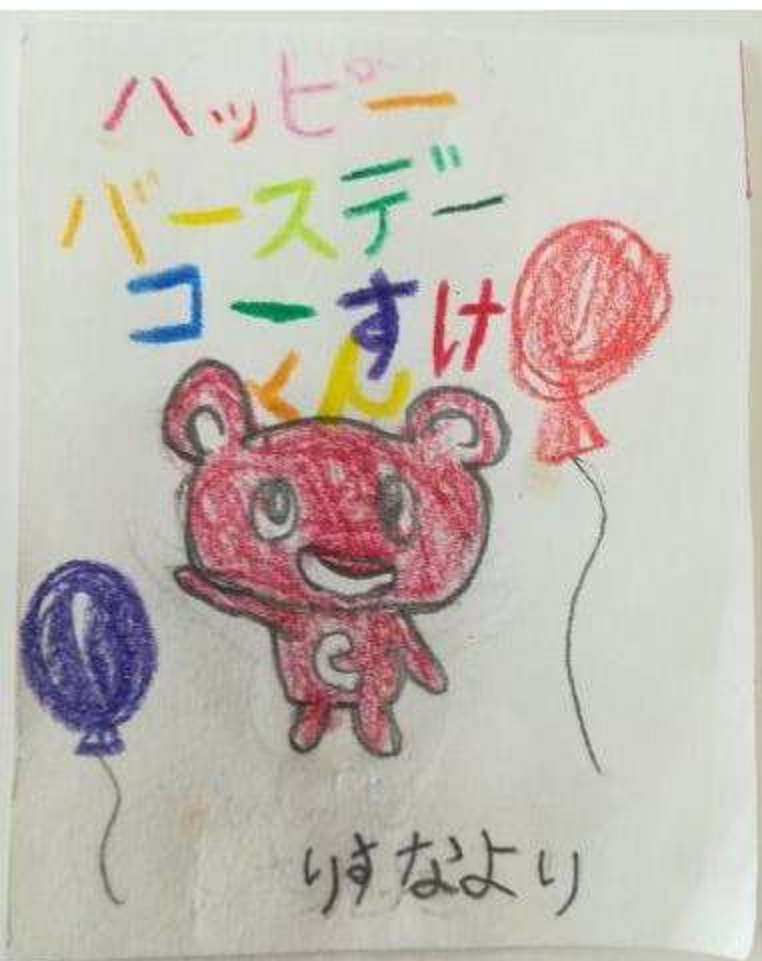 ハッピー
バースデー
コーすけ
くん
りすなより